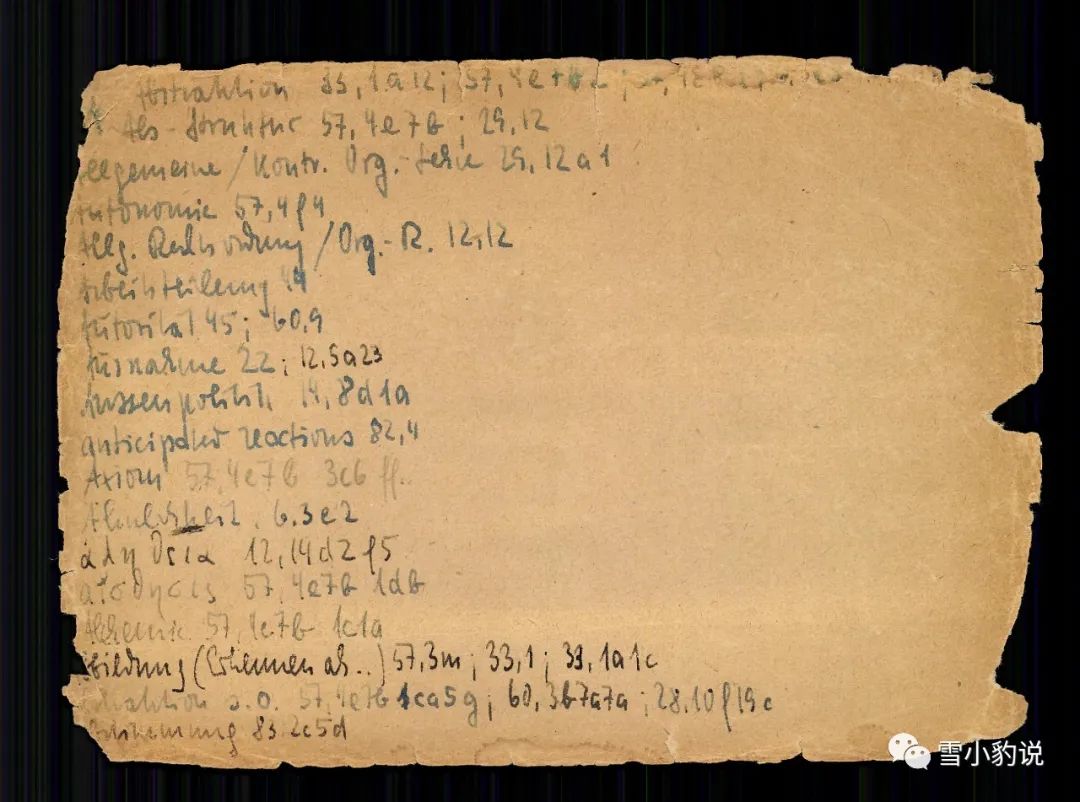 Abstraktion 33,1a12; 57,4e
Als-Struktur 57,4e7b; 29,12
Allgemeine/Kontr. Org.-Lehre 29,12a1
Autonomie 57,4f4
Allg. Rechtsordnung/Org.-R. 12,12
Arbeitsteilung 44
Autorität 45; 60,9
Ausnahme 22; 12,5a23
Aussenpolitik 14,8d1a
anticipated reactions 82,4
Axiom 57,4e7b 3c6 ff.
Ähnlichkeit 6.3e2
12,14d2f5
57,4e7b 1db
57,4e7b 1c1a
Abbildung (Erkennen als..) 57,3m; 33,1; 33,1a1c
s.o. 57,4e7b 1ca5g; 60,3b7a7a; 28.10f19c
83.2c5d
雪小豹说